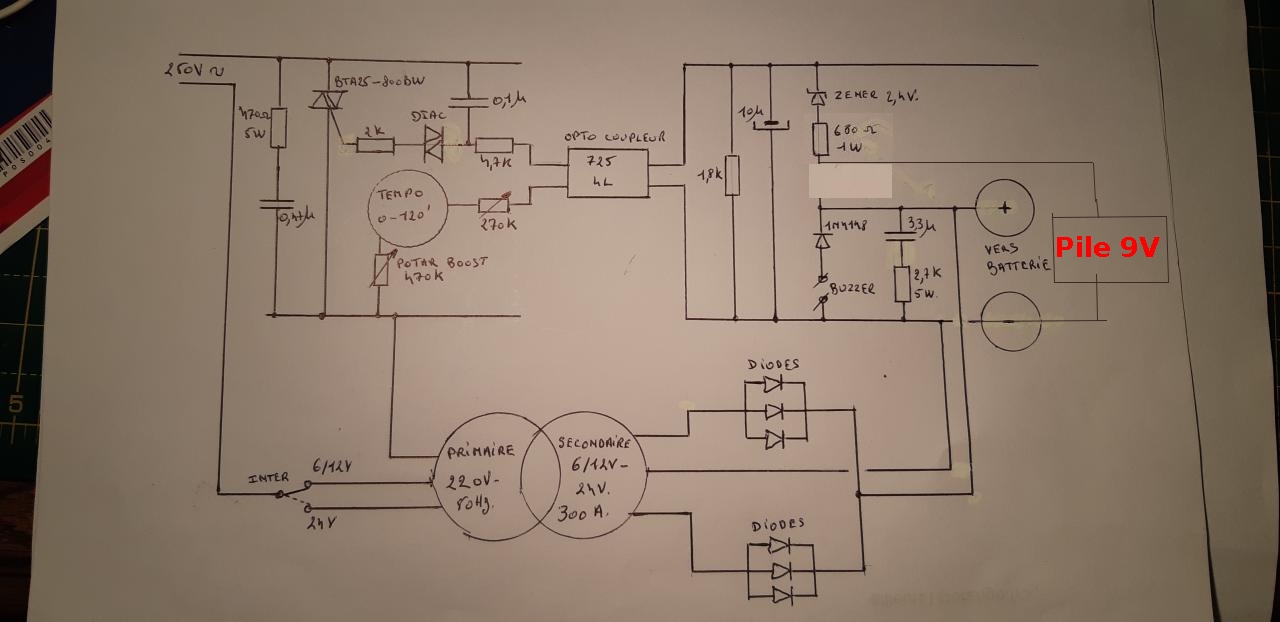 250V ~
BTA25-800BW
470Ω
5W
0,47µ
2K
DIAC
0,1µ
4,7K
TEMPO
0-120'
270K
POTAR BOOST
470K
OPTO COUPLEUR
725
4L
1,8K
10µ
ZENER 2,4V.
680Ω
1W
1N4148
BUZZER
3,3µ
2,7K
5W.
+
VERS
BATTERIE
-
Pile 9V
DIODES
PRIMAIRE
220V~
50Hg.
SECONDAIRE
6/12V-
24V.
300A.
INTER
6/12V
24V
DIODES
5